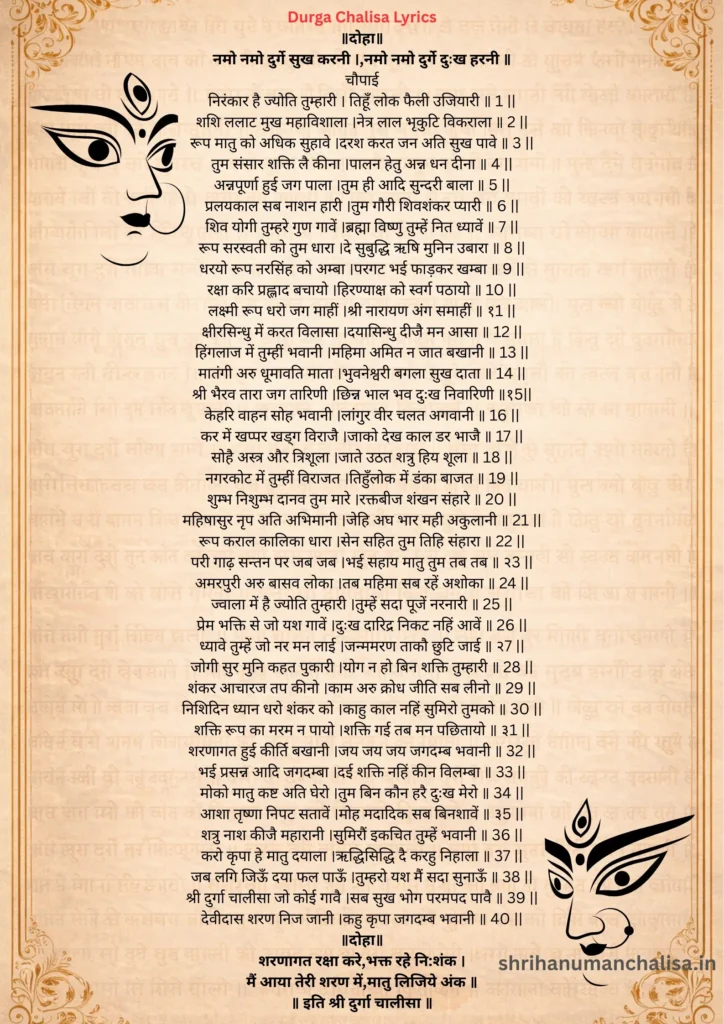 Durga Chalisa Lyrics
॥दोहा॥
नमो नमो दुर्गे सुख करनी ।,नमो नमो दुर्गे दुःख हरनी ॥
चौपाई
निरंकार है ज्योति तुम्हारी । तिहूँ लोक फैली उजियारी ॥ 1 ||
शशि ललाट मुख महाविशाला ।नेत्र लाल भृकुटि विकराला ॥ 2 ||
रूप मातु को अधिक सुहावे ।दरश करत जन अति सुख पावे ॥ 3 ||
तुम संसार शक्ति लै कीना ।पालन हेतु अन्न धन दीना ॥ 4 ||
अन्नपूर्णा हुई जग पाला ।तुम ही आदि सुन्दरी बाला ॥ 5 ||
प्रलयकाल सब नाशन हारी ।तुम गौरी शिवशंकर प्यारी ॥ 6 ||
शिव योगी तुम्हरे गुण गावें ।ब्रह्मा विष्णु तुम्हें नित ध्यावें ॥ 7 ||
रूप सरस्वती को तुम धारा ।दे सुबुद्धि ऋषि मुनिन उबारा ॥ 8 ||
धरयो रूप नरसिंह को अम्बा ।परगट भई फाड़कर खम्बा ॥ 9 ||
रक्षा करि प्रह्लाद बचायो ।हिरण्याक्ष को स्वर्ग पठायो ॥ 10 ||
लक्ष्मी रूप धरो जग माहीं ।श्री नारायण अंग समाहीं ॥ १1 ||
क्षीरसिन्धु में करत विलासा ।दयासिन्धु दीजै मन आसा ॥ 12 ||
हिंगलाज में तुम्हीं भवानी ।महिमा अमित न जात बखानी ॥ 13 ||
मातंगी अरु धूमावति माता ।भुवनेश्वरी बगला सुख दाता ॥ 14 ||
श्री भैरव तारा जग तारिणी ।छिन्न भाल भव दुःख निवारिणी ॥१5||
केहरि वाहन सोह भवानी ।लांगुर वीर चलत अगवानी ॥ 16 ||
कर में खप्पर खड्ग विराजै ।जाको देख काल डर भाजै ॥ 17 ||
सोहै अस्त्र और त्रिशूला ।जाते उठत शत्रु हिय शूला ॥ 18 ||
नगरकोट में तुम्हीं विराजत ।तिहुँलोक में डंका बाजत ॥ 19 ||
शुम्भ निशुम्भ दानव तुम मारे ।रक्तबीज शंखन संहारे ॥ 20 ||
महिषासुर नृप अति अभिमानी ।जेहि अघ भार मही अकुलानी ॥ 21 ||
रूप कराल कालिका धारा ।सेन सहित तुम तिहि संहारा ॥ 22 ||
परी गाढ़ सन्तन पर जब जब ।भई सहाय मातु तुम तब तब ॥ २3 ||
अमरपुरी अरु बासव लोका ।तब महिमा सब रहें अशोका ॥ 24 ||
ज्वाला में है ज्योति तुम्हारी ।तुम्हें सदा पूजें नरनारी ॥ 25 ||
प्रेम भक्ति से जो यश गावें ।दुःख दारिद्र निकट नहिं आवें ॥ 26 ||
ध्यावे तुम्हें जो नर मन लाई ।जन्ममरण ताकौ छुटि जाई ॥ २7 ||
जोगी सुर मुनि कहत पुकारी ।योग न हो बिन शक्ति तुम्हारी ॥ 28 ||
शंकर आचारज तप कीनो ।काम अरु क्रोध जीति सब लीनो ॥ 29 ||
निशिदिन ध्यान धरो शंकर को ।काहु काल नहिं सुमिरो तुमको ॥ 30 ||
शक्ति रूप का मरम न पायो ।शक्ति गई तब मन पछितायो ॥ ३1 ||
शरणागत हुई कीर्ति बखानी ।जय जय जय जगदम्ब भवानी ॥ 32 ||
भई प्रसन्न आदि जगदम्बा ।दई शक्ति नहिं कीन विलम्बा ॥ 33 ||
मोको मातु कष्ट अति घेरो ।तुम बिन कौन हरै दुःख मेरो ॥ 34 ||
आशा तृष्णा निपट सतावें ।मोह मदादिक सब बिनशावें ॥ ३5 ||
शत्रु नाश कीजै महारानी ।सुमिरौं इकचित तुम्हें भवानी ॥ 36 ||
करो कृपा हे मातु दयाला ।ऋद्धिसिद्धि दै करहु निहाला ॥ 37 ||
जब लगि जिऊँ दया फल पाऊँ ।तुम्हरो यश मैं सदा सुनाऊँ ॥ 38 ||
श्री दुर्गा चालीसा जो कोई गावै ।सब सुख भोग परमपद पावै ॥ 39 ||
देवीदास शरण निज जानी ।कहु कृपा जगदम्ब भवानी ॥ 40 ||
॥दोहा॥
शरणागत रक्षा करे,भक्त रहे नि:शंक ।
मैं आया तेरी शरण में,मातु लिजिये अंक ॥
॥ इति श्री दुर्गा चालीसा ॥
shrihanumanchalisa.in